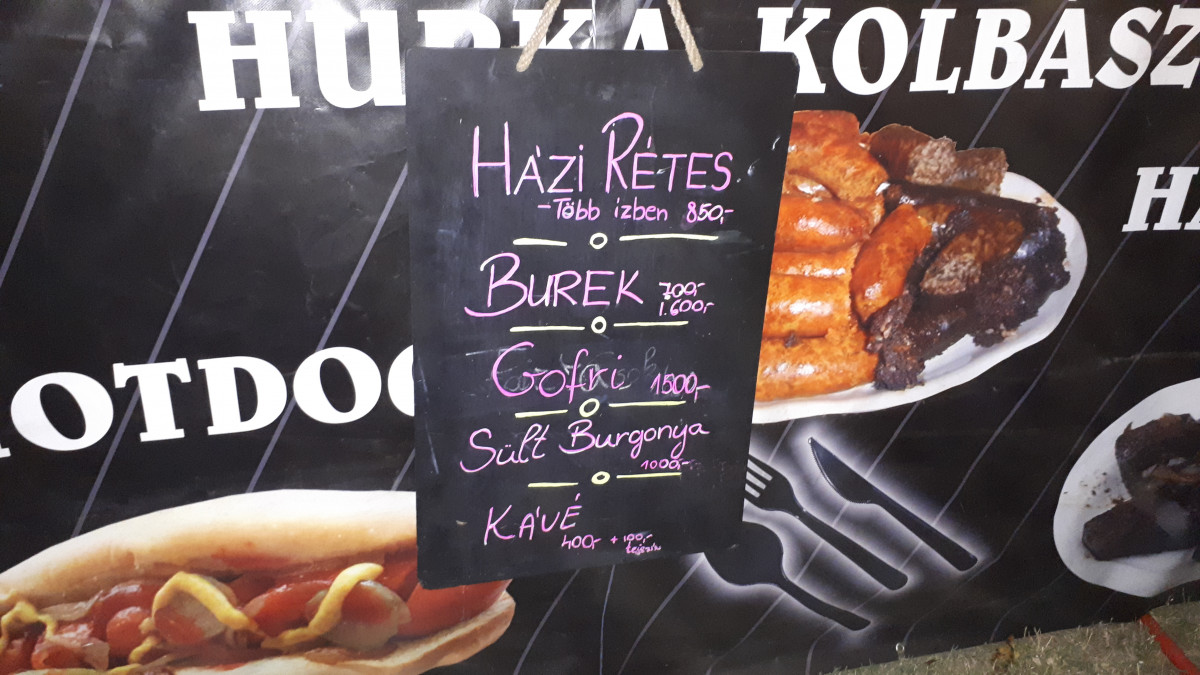 HURKA KOLBÁSZ
HÁZI RÉTES
-Több izben 850,-
BUREK 700,-
1.600,-
Gofri 1500,-
HOTDOG
Sült Burgonya
1000,-
KÁVÉ
400,- + 100,-
tejszín